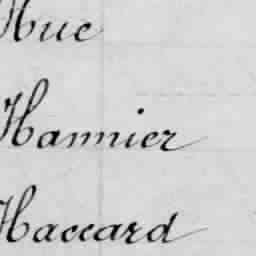 Hue
Hannier
Haccard